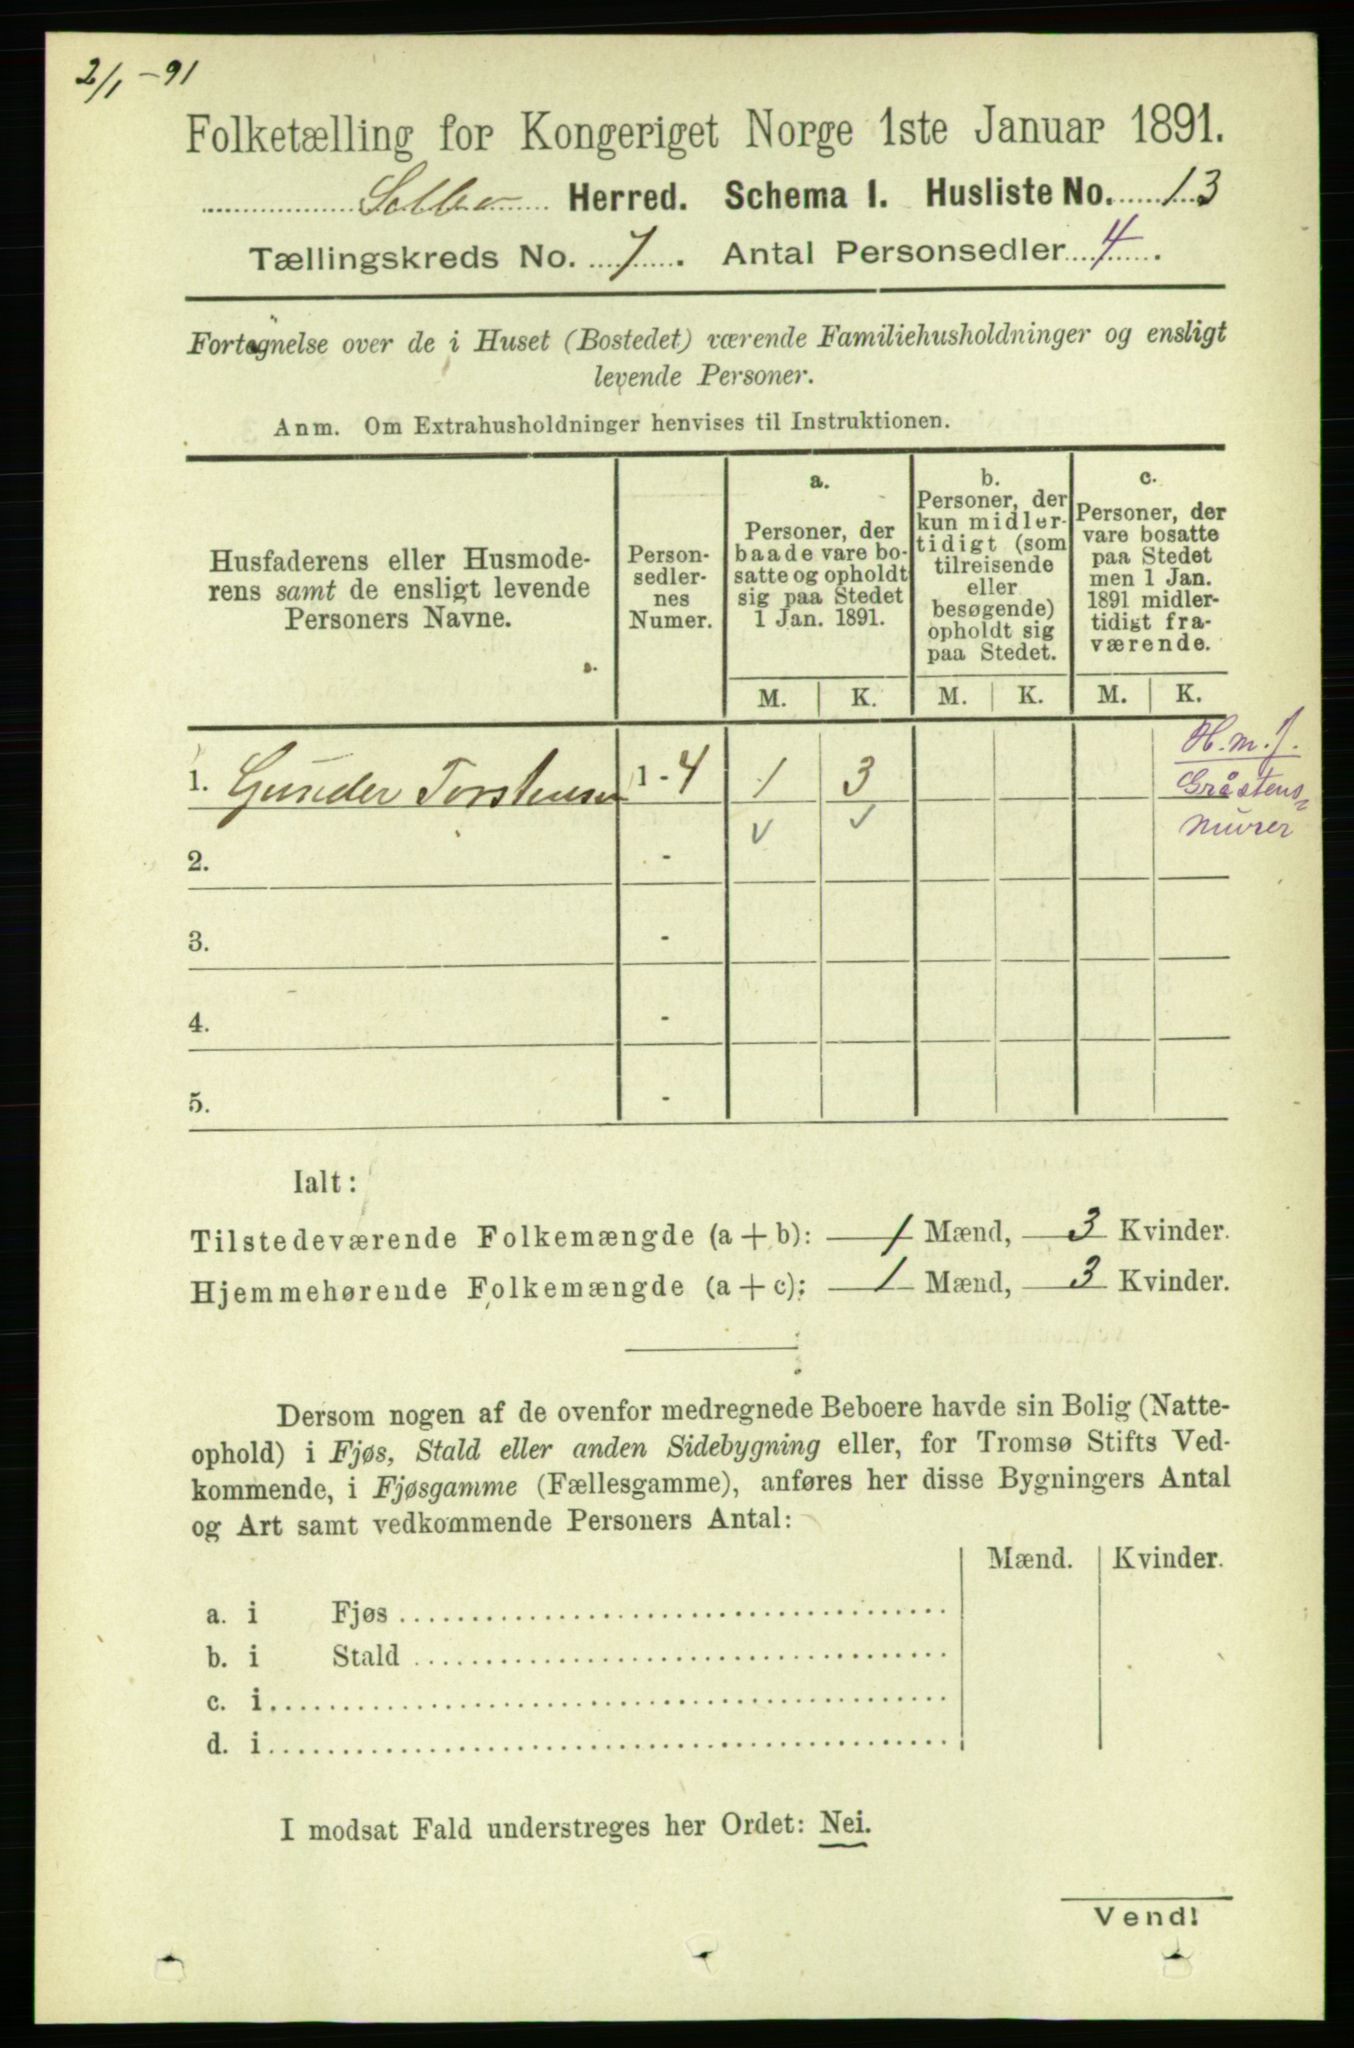 2/1-91
Folketælling for Kongeriget Norge 1ste Januar 1891.
Selbo Herred. Schema 1. Husliste No. 13
Tællingskreds No. 7. Antal Personsedler 4.
Fortegnelse over de i Huset (Bostedet) værende Familiehusholdninger og ensligt
levende Personer.
Anm. Om Extrahusholdninger henvises til Instruktionen.
Husfaderens eller Husmode-
rens samt de ensligt levende
Personers Navne.
Person-
sedler-
nes
Numer.
a.
Personer, der
baade vare bo-
satte og opholdt
sig paa Stedet
1 Jan. 1891.
b.
Personer, der
kun midler-
tidigt (som
tilreisende
eller
besøgende)
opholdt sig
paa Stedet.
c.
Personer, der
vare bosatte
paa Stedet
men 1 Jan.
1891 midler-
tidigt fra-
værende.
M. K. M. K. M. K.
1. Gunder Torstensen 1-4 1 3
H.m.J.
Gråstens-
murer
2. -
3. -
4. -
5. -
Ialt:
Tilstedeværende Folkemængde (a + b): 1 Mænd, 3 Kvinder.
Hjemmehørende Folkemængde (a + c): 1 Mænd, 3 Kvinder.
Dersom nogen af de ovenfor medregnede Beboere havde sin Bolig (Natte-
ophold) i Fjøs, Stald eller anden Sidebygning eller, for Tromsø Stifts Ved-
kommende, i Fjøsgamme (Fællesgamme), anføres her disse Bygningers Antal
og Art samt vedkommende Personers Antal:
Mænd. Kvinder.
a. i Fjøs
b. i Stald
c. i
d. i
I modsat Fald understreges her Ordet: Nei.
Vend!